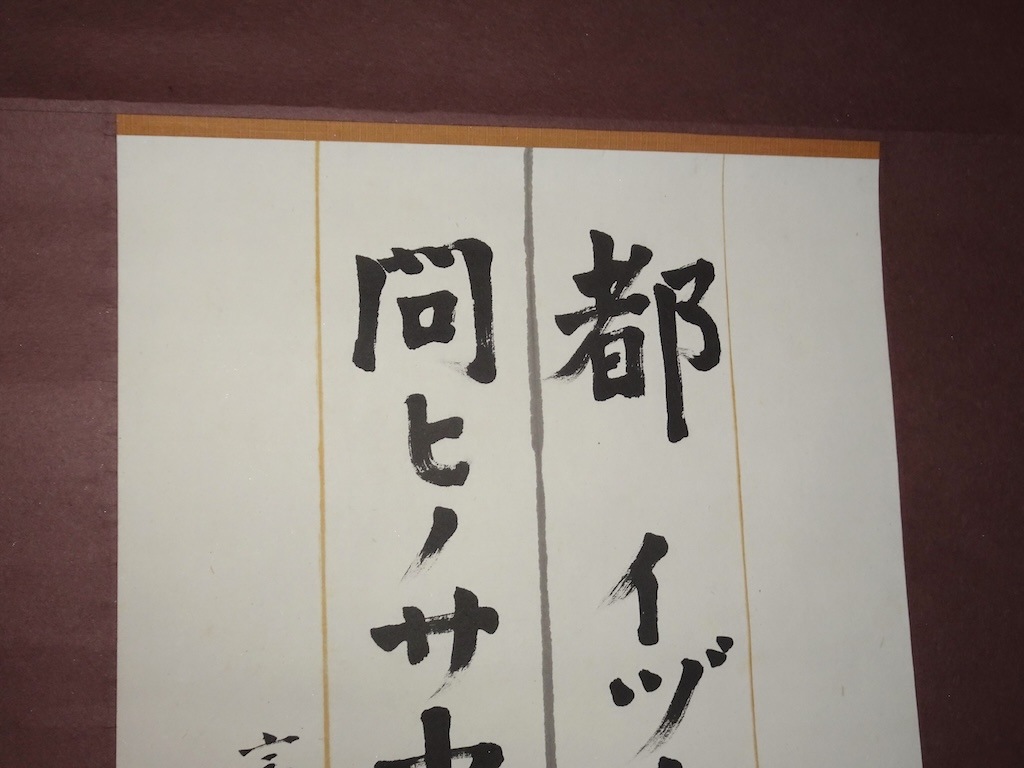 都 イヅ
問ヒノサ